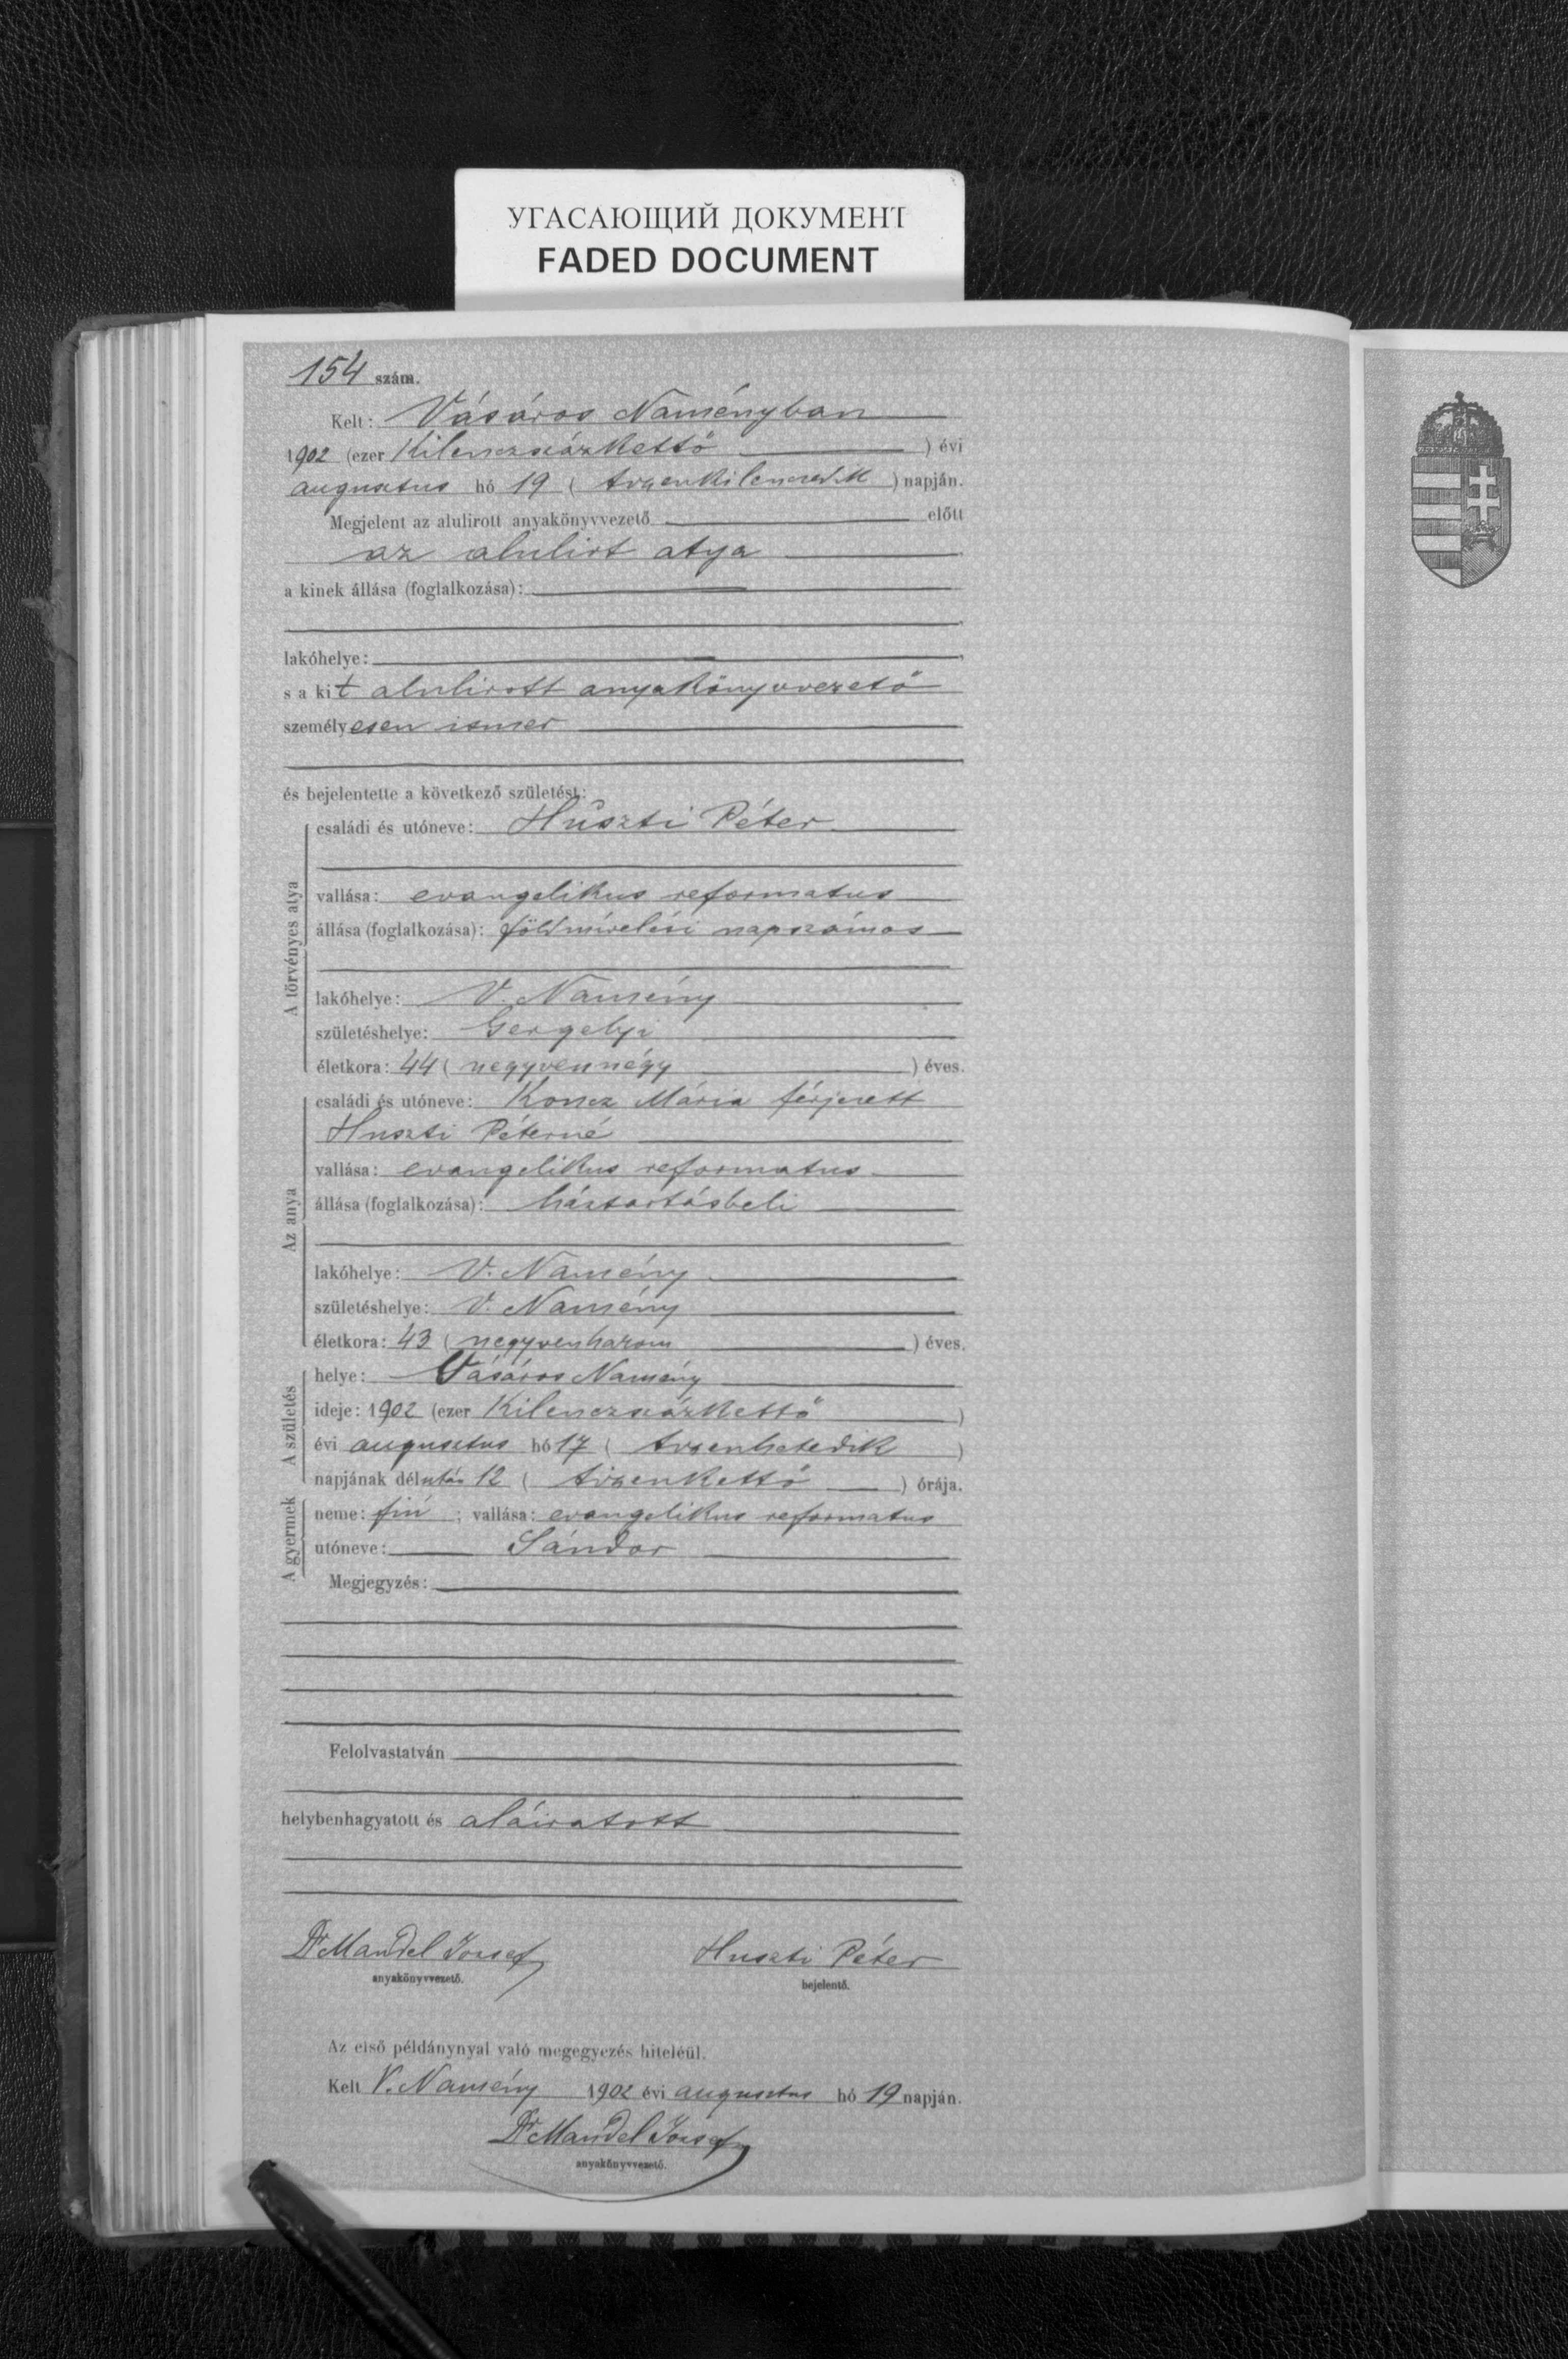 УГАСАЮЩИЙ ДОКУМЕНТ
FADED DOCUMENT
154 szám.
Kelt: Vásáros Naményban
1902 (ezer Kilenczszázkettő ) évi
augusztus hó 19 ( tizenkilenczedik ) napján.
Megjelent az alulirott anyakönyvvezető előtt
az alulirt atya
a kinek állása (foglalkozása):
lakóhelye:
s a kit alulirott anyakönyvvezető
személyesen ismer
és bejelentette a következő születést:
A törvényes atya
családi és utóneve: Huszti Péter
vallása: evangelikus reformatus
állása (foglalkozása): földmivelési napszámos
lakóhelye: V. Namény
születéshelye: Gergelyi
életkora: 44 ( negyvennégy ) éves.
Az anya
családi és utóneve: Koncz Mária férjezett
Huszti Péterné
vallása: evangelikus reformatus
állása (foglalkozása): háztartásbeli
lakóhelye: V. Namény
születéshelye: V. Namény
életkora: 43 ( negyvenharom ) éves.
A születés
helye: Vásáros Namény
ideje: 1902 (ezer Kilenczszázkettő )
évi augusztus hó 17 ( tizenhetedik )
napjának délután 12 ( tizenkettő ) órája.
A gyermek
neme: fiú ; vallása: evangelikus reformatus
utóneve: Sándor
Megjegyzés:
Felolvastatván
helybenhagyatott és aláiratott
Dr Mandel József Huszti Péter
anyakönyvvezető. bejelentő.
Az első példánynyal való megegyezés hiteléül.
Kelt V. Namény 1902 évi augusztus hó 19 napján.
Dr Mandel József
anyakönyvvezető.